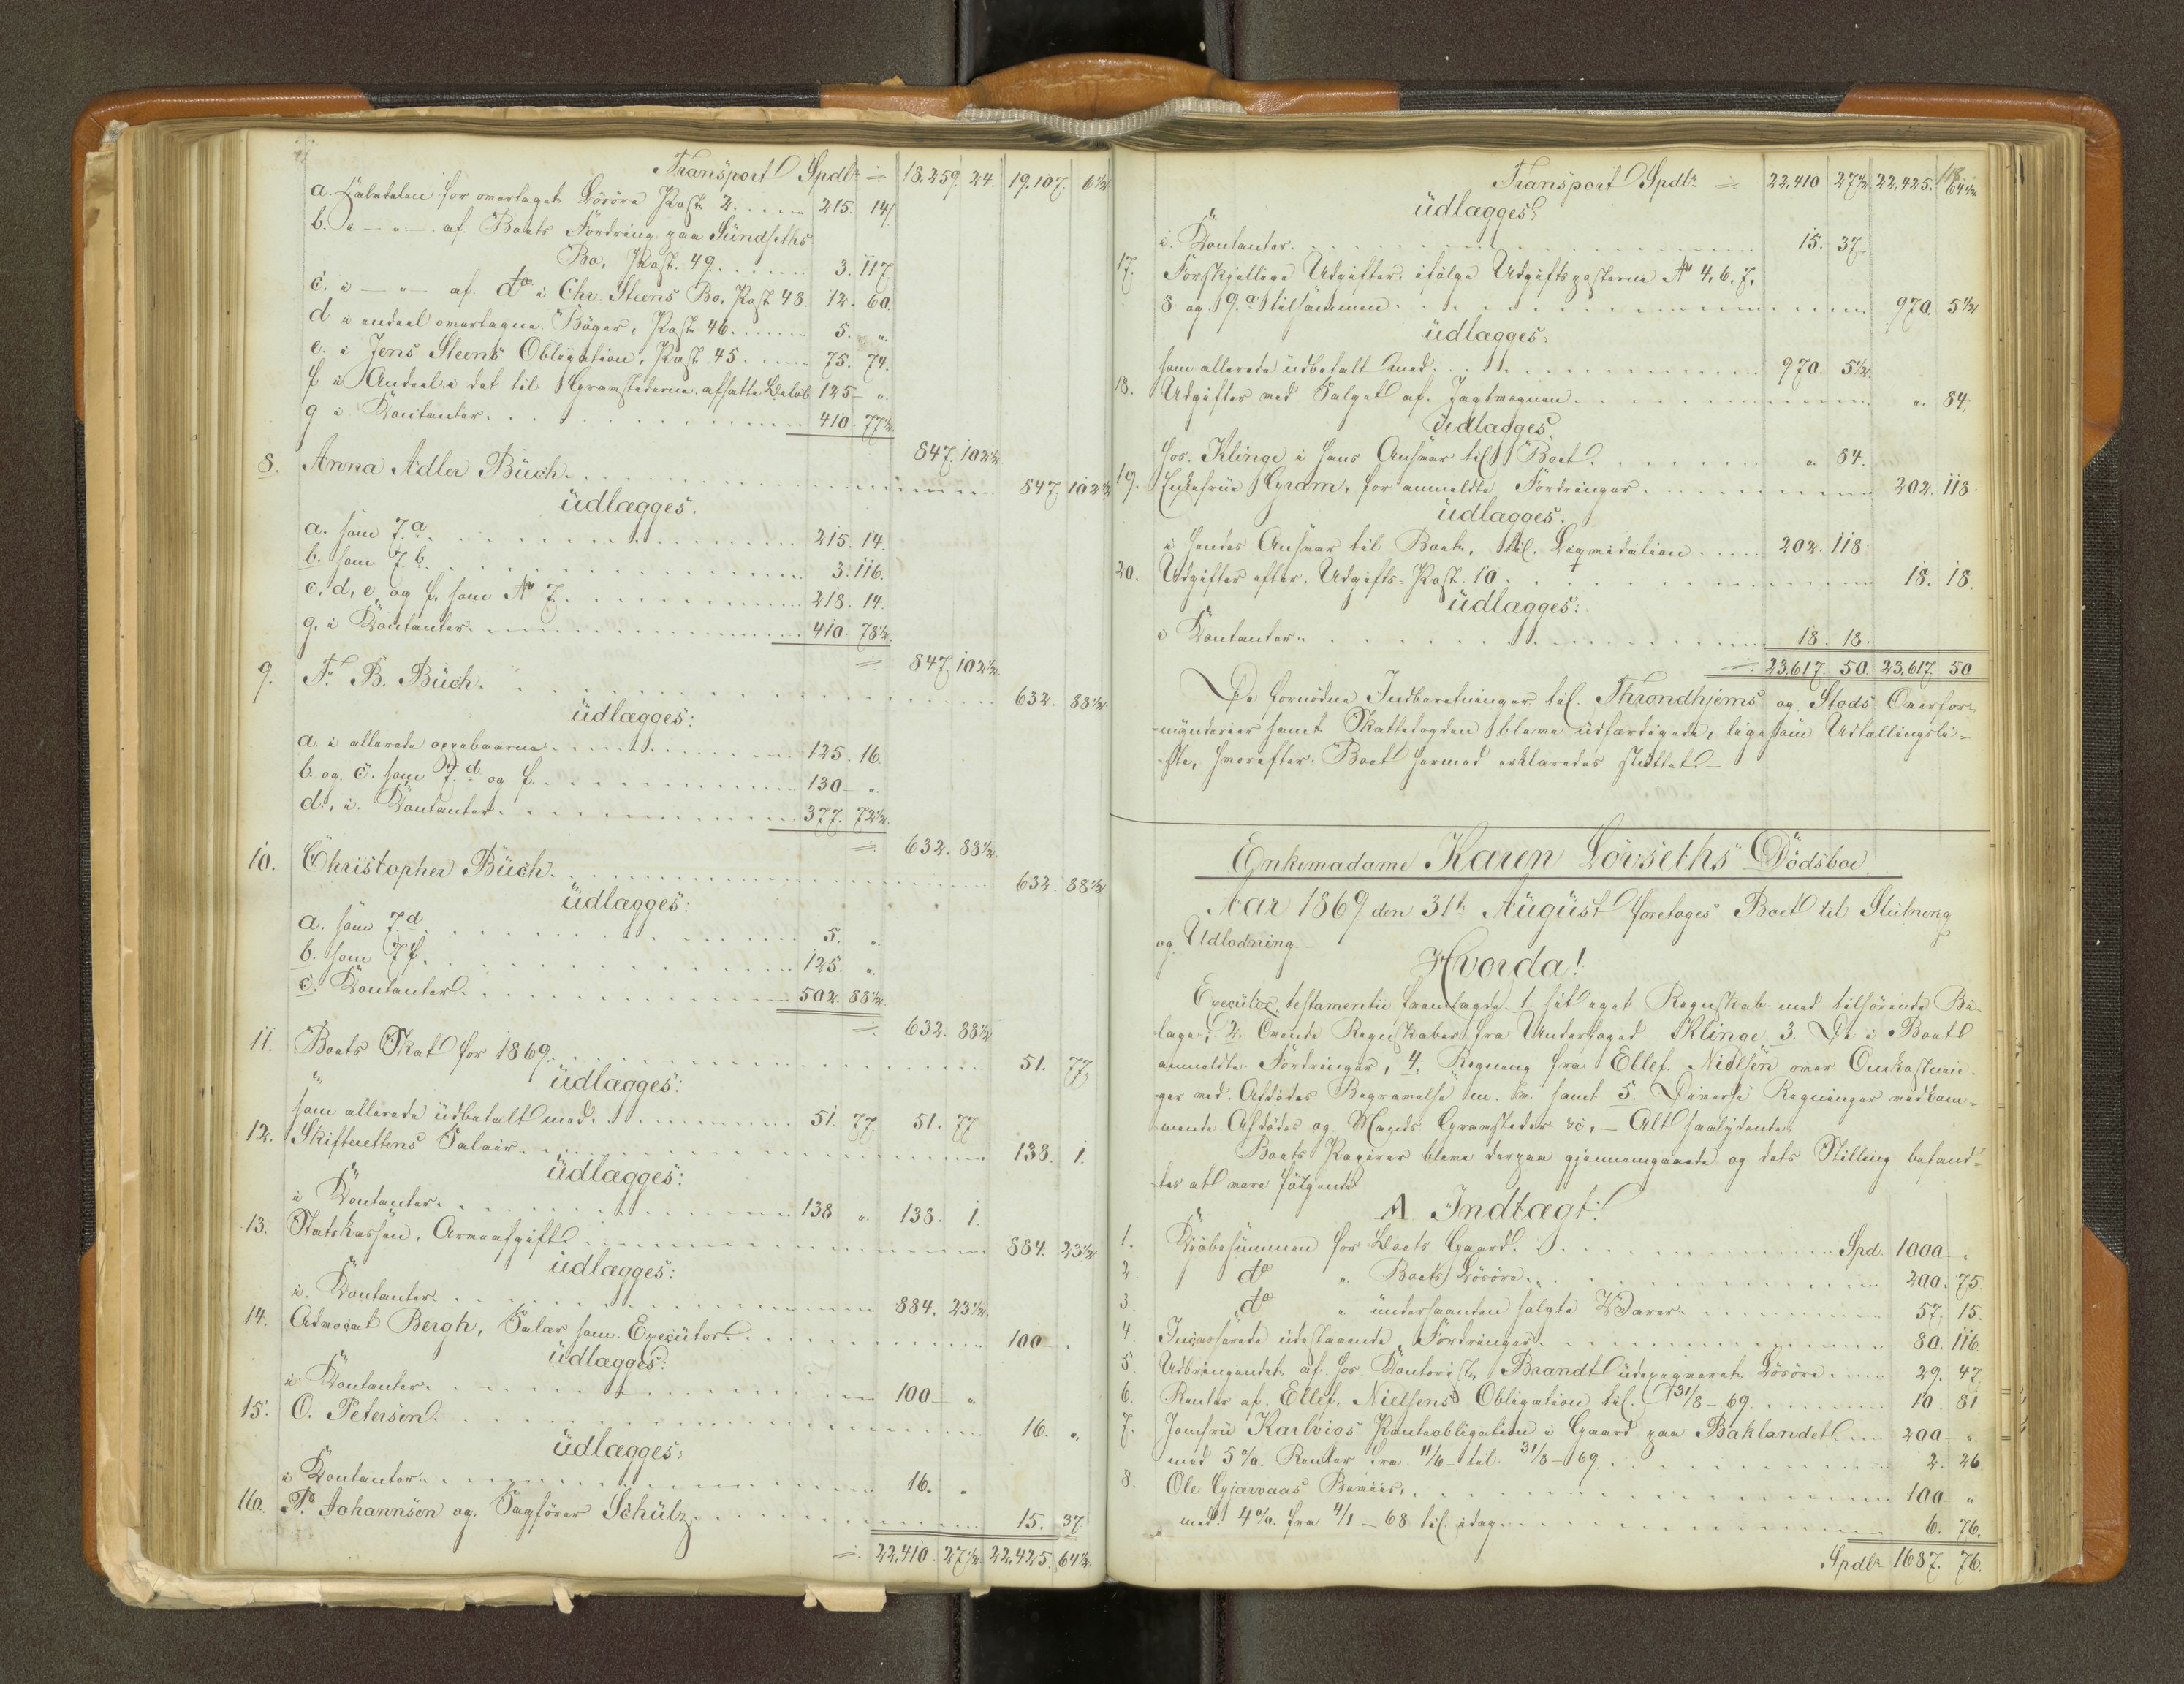 Transport Spdlr = 18,259. 24. 19,107. 6 1/2
a. Halvdelen for overtaget Løsøre Post 2 . . . . 215. 14
b. i — " — af Boets Fordring paa Sundseths
Bo, Post. 49 . . . . 3. 117.
c. i — " — af do i Chr. Steens Bo, Post 48. 12. 60.
d i endeel overtagne Bøger, Post 46 . . . . 5. "
e. i Jens Steens Obligation, Post 45 . . . . 75. 74.
f i Andeel i det til Gravstederne afsatte Beløb 125 — "
g i Contanter . . . . 410. 77 1/2.
847. 102 1/2
8. Anna Adler Büch . . . . 847. 102 1/2
udlægges.
a. som 7.a . . . . 215. 14.
b. som 7 b. . . . . 3. 116.
c, d, e og f. som No 7 . . . . 218. 14.
g. i Contanter . . . . 410. 78 1/2.
= 847. 102 1/2.
9. F. B. Büch . . . . 632. 88 1/2.
udlægges:
a. i allerede oppebaarne . . . . 125. 16.
b. og c. som 7. d og f. . . . . 130 — "
d., i Contanter . . . . 377. 72 1/2.
= 632. 88 1/2.
10. Christopher Büch . . . . 632. 88 1/2
udlægges:
a. som 7.d . . . . 5. "
b. som 7 f. . . . . 125. "
c. Contanter . . . . 502. 88 1/2.
= 632. 88 1/2
11. Boets Skat for 1869 . . . . 51. 77.
udlægges:
som allerede udbetalt med . . . . 51. 77. 51. 77
12. Skifterettens Salair . . . . 138. 1.
udlægges:
i Contanter . . . . 138 " 138. 1.
13. Statskassen, Arveafgift . . . . 884. 23 1/2
udlægges:
i. Contanter . . . . 884. 23 1/2.
14. Advocat Bergh, Salær som Executor . . . . 100 — "
udlægges:
i Contanter . . . . 100 — "
15. O. Peterson . . . . 16. "
udlægges:
i Contanter . . . . 16. "
16. P. Johannsen og Sagfører Schülz . . . . 15. 37
= 22,410. 27 1/2. 22,425. 64 1/2.
Transport Spdlr = 22,410 27 1/2. 22,425. 64 1/2
udlægges:
i. Contanter . . . . 15. 37 —
17. Forskjellige Udgifter, ifølge Udgiftsposterne No 4, 6, 7,
8 og 9.a tilsammen . . . . 970. 5 1/2
udlægges:
som allerede udbetalt med . . . . 970. 5 1/2.
18. Udgifter med Salget af Jagtvognen . . . . ". 84.
udlægges
hos Klinge i hans Ansvar til Boet . . . . ". 84.
19. Enkefrue Gram, for anmeldte Fordringer . . . . 202. 118.
udlægges:
i hendes Ansvar til Boet, til Liqvidation . . . . 202. 118.
20. Udgifter efter Udgifts-Post 10 . . . . 18. 18.
udlægges:
i Contanter . . . . 18. 18.
= 23,617. 50. 23,617. 50
De fornødne Indberetninger til Throndhjems og Steds Overfor-
-mynderier samt Skattefogden bleve udfærdigede, ligesom Udtællingsli-
-ste, hvorefter Boet hermed erklæredes sluttet —
Enkemadame Karen Lövseths Dödsboe.
Aar 1869 den 31te August foretoges Boet til Slutning
og Udlodning. —
Hvorda!
Executor testamenti fremlagde 1. sit eget Regnskab med tilhørende Bi-
lage, 2. Tvende Regnskaber fra Underfoged Klinge 3. De i Boet
anmeldte Fordringer, 4. Regning fra Ellef Nielsen over Omkostnin-
ger med Afdødes Begravelse m. m. samt 5. Diverse Regninger vedkom-
mende Afdødes og Mands Gravsteder &c, — Alt saalydende.
Boets Papirer bleve derpaa gjennemgaaede og dets Stilling befand-
-tes at være følgende
A Indtægt:
1. Kjøbesummen for Boets Gaard . . . . Spd. 1000 — .
2 do " Boets Løsøre . . . . 200. 75.
3. do " underhaanden solgte Varer . . . . 57. 15.
4 Incasserede udestaaende Fordringer . . . . 80. 116.
5. Udbringendet af hos Contorist Brandt Løsøre . . . . 29. 47.
6. Renter af Ellef Nielsens Obligation til 31/8 – 69 . . . . 10. 81
7. Jomfru Karlvigs Panteobligation i Gaard paa Baklandet . . . . 200 — "
med 5 %. Renter fra 11/6 – til 31/8 – 69 . . . . 2. 26.
8. Ole Gjærvaas Beviis, . . . . 100 — "
med 4 %. fra 4/1 – 68 til idag . . . . 6. 76.
Spdlr 1687. 76.